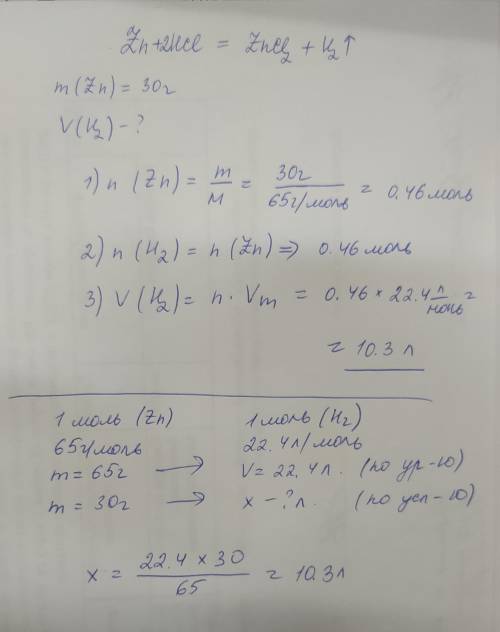 Zn+2HCl = ZnCl₂ + H₂↑
m(Zn) = 30г
V(H₂) - ?
1) n (Zn) = m/M = 30г/65г/моль = 0.46 моль
2) n (H₂) = n (Zn) => 0.46 моль
3) V (H₂) = n · Vm = 0.46 × 22.4 л/моль =
= 10.3 л
1 моль (Zn) 1 моль (H₂)
65г/моль 22.4л/моль
m = 65г → V = 22,4л. (по ур-ю)
m = 30г → x - ? л. (по усл-ю)
x = 22.4 × 30/65 = 10.3л